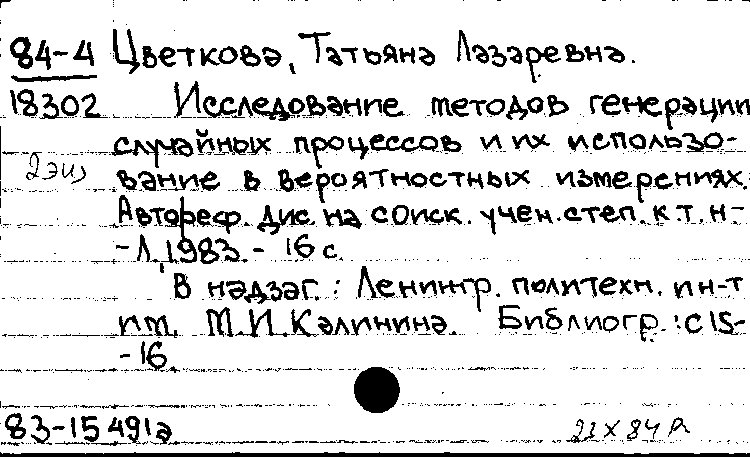 84-4 Цветкова, Татьяна Лазаревна.
18302 Исследование методов генерации
случайных процессов и их использо-
2 экз
вание в вероятностных измерениях.
Автореф. дис. на соиск. учен. степ. к.т.н-
-Л. 1983. - 16 с.
В надзаг.: Ленингр. политехн. ин-т
им. М.И. Калинина. Библиогр.: с 15-
-16.
83-15491а
23 X 84